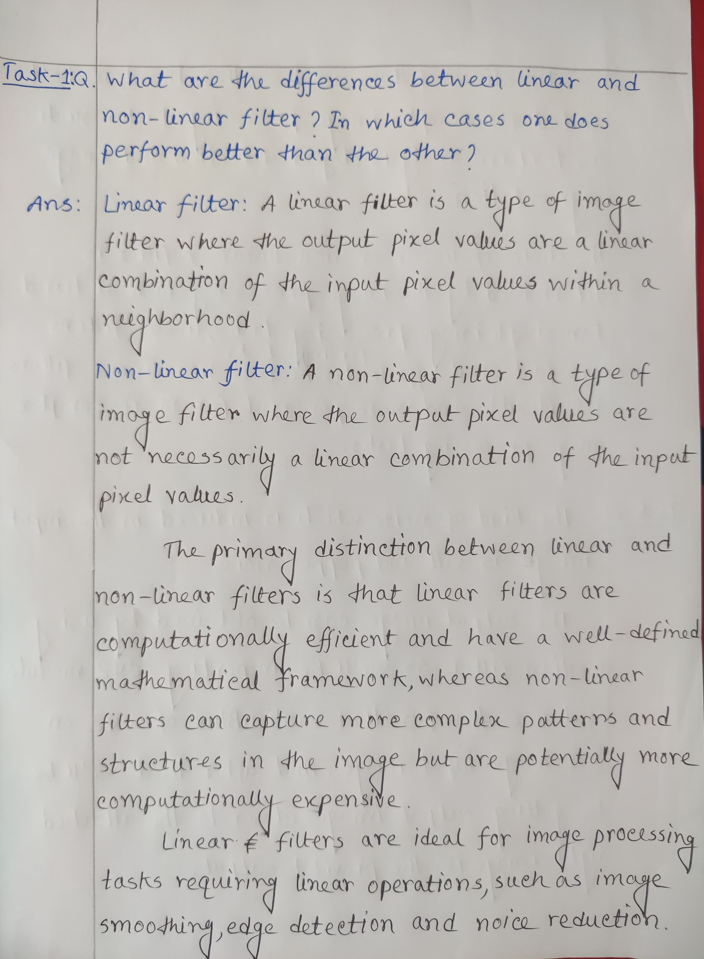 Task-1:Q. What are the differences between linear and
non-linear filter? In which cases one does
perform better than the other?
Ans: Linear filter: A linear filter is a type of image
filter where the output pixel values are a linear
combination of the input pixel values within a
neighborhood.
Non-linear filter: A non-linear filter is a type of
image filter where the output pixel values are
not necessarily a linear combination of the input
pixel values.
The primary distinction between linear and
non-linear filters is that linear filters are
computationally efficient and have a well-defined
mathematical framework, whereas non-linear
filters can capture more complex patterns and
structures in the image but are potentially more
computationally expensive.
Linear filters are ideal for image processing
tasks requiring linear operations, such as image
smoothing, edge detection and noice reduction.